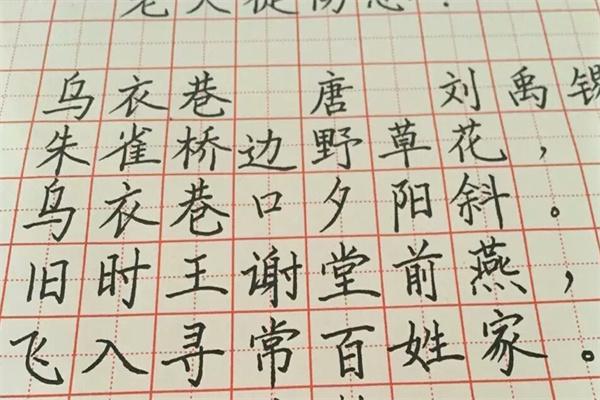 老大徒伤悲!
乌衣巷 唐 刘禹锡
朱雀桥边野草花，
乌衣巷口夕阳斜。
旧时王谢堂前燕，
飞入寻常百姓家。